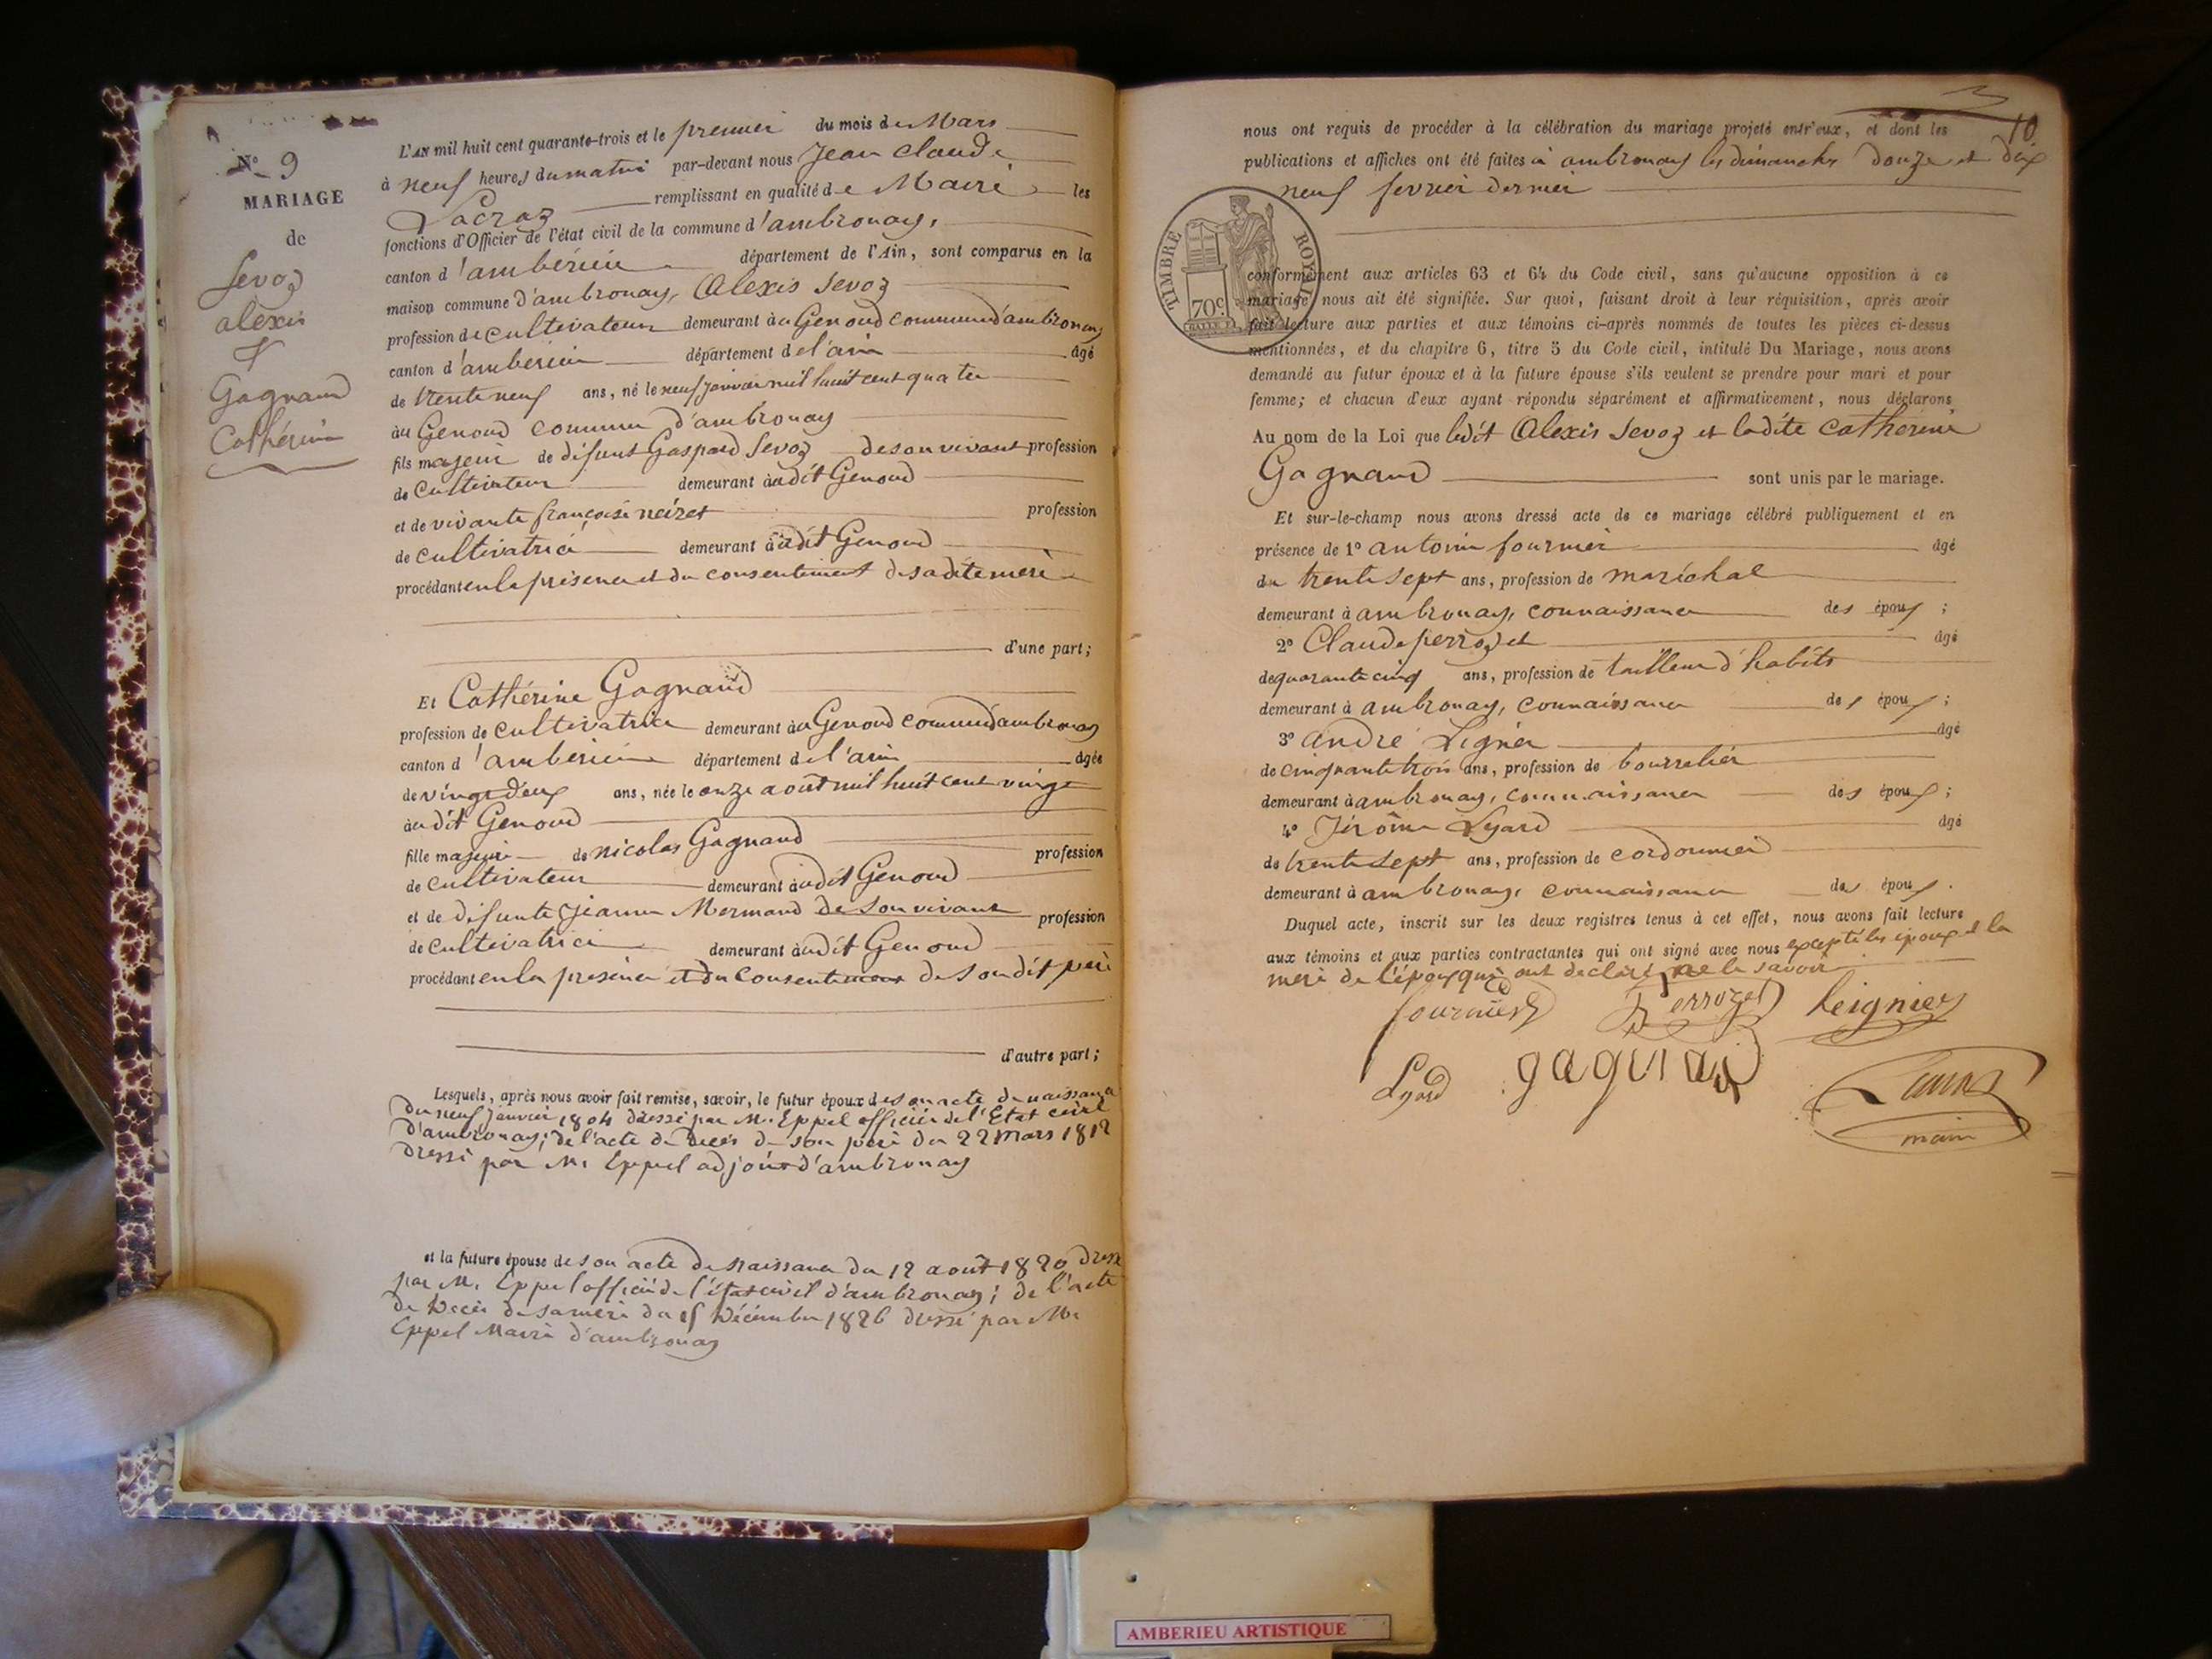 N° 9
MARIAGE
de
Sevoz
alexis
&
Gagnand
Cathérine
L'AN mil huit cent quarante-trois et le premier du mois de Mars
à neuf heures du matin par-devant nous Jean Claude
Lacroz remplissant en qualité de Maire les
fonctions d'Officier de l'état civil de la commune d'ambronay,
canton d'ambérieu département de l'Ain, sont comparus en la
maison commune d'ambronay, Alexis Sevoz
profession de cultivateur demeurant au Genoud commune d'ambronay
canton d'ambérieu département de l'ain âgé
de trente neuf ans, né le neuf janvier mil huit cent quatre
au Genoud commune d'ambronay
fils majeur de défunt Gaspard Sevoz de son vivant profession
de cultivateur demeurant audit Genoud
et de vivante françoise neizet profession
de cultivatrice demeurant audit Genoud
procédant en la présence et du consentement de sadite mère
d'une part;
Et Cathérine Gagnand
profession de cultivatrice demeurant au Genoud commune d'ambronay
canton d'ambérieu département de l'ain âgée
de vingt deux ans, née le onze aout mil huit cent vingt
audit Genoud
fille majeure de nicolas Gagnand profession
de cultivateur demeurant audit Genoud
et de défunte Jeanne Mermand de son vivant profession
de cultivatrice demeurant audit Genoud
procédant en la présence et du consentement de son dit père
d'autre part;
Lesquels, après nous avoir fait remise, savoir, le futur époux de son acte de naissance
du neuf janvier 1804 dressé par M. Eppel officier de l'Etat civil
d'ambronay; de l'acte de décès de son père du 22 mars 1812
dressé par M. Eppel adjoint d'ambronay
et la future épouse de son acte de naissance du 12 août 1820 dressé
par M. Eppel officier de l'état civil d'ambronay; de l'acte
de décès de sa mère du 15 Décembre 1826 dressé par M.
Eppel Maire d'ambronay
10
nous ont requis de procéder à la célébration du mariage projeté entr'eux, et dont les
publications et affiches ont été faites à ambronay les dimanches douze et dix
neuf fevrier dernier
TIMBRE ROYAL
70c.
conformément aux articles 63 et 64 du Code civil, sans qu'aucune opposition à ce
mariage nous ait été signifiée. Sur quoi, faisant droit à leur réquisition, après avoir
fait lecture aux parties et aux témoins ci-après nommés de toutes les pièces ci-dessus
mentionnées, et du chapitre 6, titre 5 du Code civil, intitulé Du Mariage, nous avons
demandé au futur époux et à la future épouse s'ils veulent se prendre pour mari et pour
femme; et chacun d'eux ayant répondu séparément et affirmativement, nous déclarons
Au nom de la Loi que ledit Alexis Sevoz et ladite Cathérine
Gagnand sont unis par le mariage.
Et sur-le-champ nous avons dressé acte de ce mariage célébré publiquement et en
présence de 1° antoine fournier âgé
de trente sept ans, profession de maréchal
demeurant à ambronay, connaissance des époux;
2° Claude perrozet âgé
de quarante cinq ans, profession de tailleur d'habits
demeurant à ambronay, connaissance des époux;
3° andré Lignier âgé
de cinquante trois ans, profession de bourrelier
demeurant à ambronay, connaissance des époux;
4° Jérôme Lyard âgé
de trente sept ans, profession de cordonnier
demeurant à ambronay, connaissance des époux.
Duquel acte, inscrit sur les deux registres tenus à cet effet, nous avons fait lecture
aux témoins et aux parties contractantes qui ont signé avec nous excepté les époux et la
mère de l'époux qui ont déclaré ne le savoir
fournier Perrozet Leignier
Lyard gagnand Lacroz
maire
AMBERIEU ARTISTIQUE